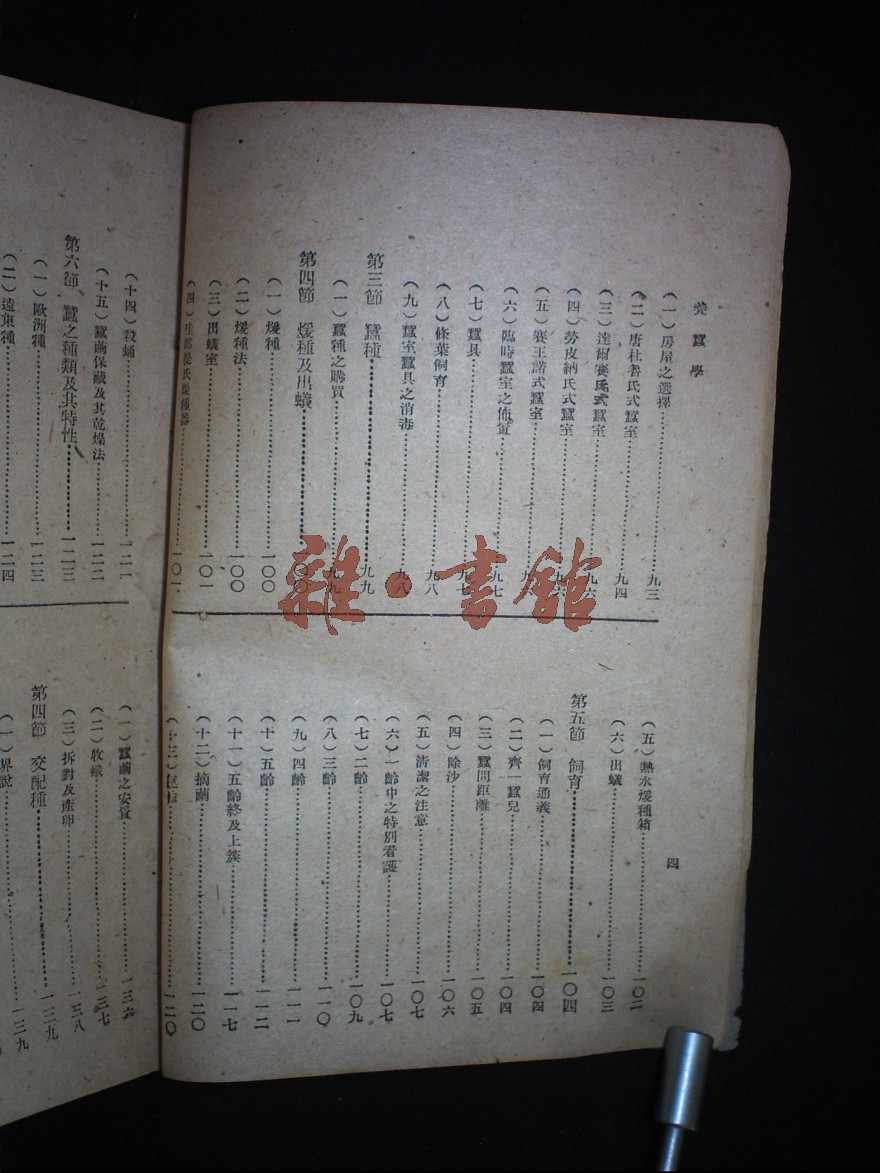 養蠶學
(一)房屋之選擇……九三
(二)唐杜魯氏式蠶室……九四
(三)達爾賽氏式蠶室……九六
(四)勞皮納氏式蠶室……九六
(五)賽王諾式蠶室
(六)臨時蠶室之佈置……九七
(七)蠶具……九七
(八)條葉飼育……九八
(九)蠶室蠶具之消毒……九八
第三節 蠶種……九九
(一)蠶種之購買……九九
第四節 煖種及出蟻……一〇〇
(一)煖種……一〇〇
(二)煖種法……一〇〇
(三)出蟻室……一〇一
(四)
……一〇一
四
(五)熱水煖種箱……一〇二
(六)出蟻……一〇三
第五節 飼育……一〇四
(一)飼育通義……一〇四
(二)齊一蠶兒……一〇四
(三)蠶間距離……一〇五
(四)除沙……一〇六
(五)清潔之注意……一〇七
(六)一齡中之特別看護……一〇七
(七)二齡……一〇九
(八)三齡……一一〇
(九)四齡……一一一
(十)五齡……一一二
(十一)五齡終及上簇……一一七
(十二)摘繭……一二〇
(十三)
……一二〇
(十四)殺蛹……一二一
(十五)蠶繭保藏及其乾燥法……一二二
第六節 蠶之種類及其特性……一二三
(一)歐洲種……一二三
(二)遠東種……一二四
(一)蠶繭之安置……一三六
(二)收蛾……一三七
(三)拆對及產卵……一三八
第四節 交配種……一三九
(一)界說……一三九
雜·書館